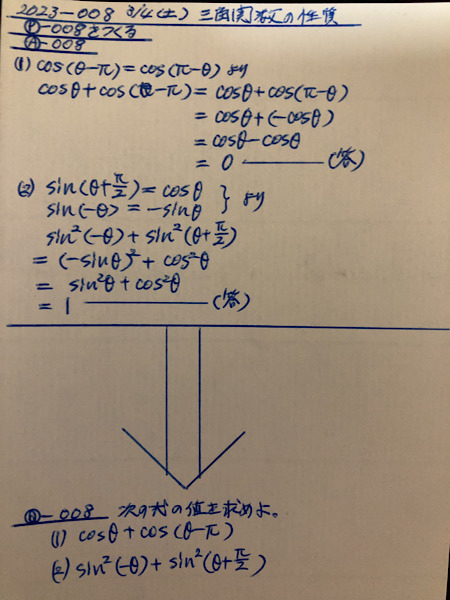 2023-008 3/4(土) 三角関数の性質
Ⓟ-008をつくる
Ⓐ-008
(1) cos(θ-π)=cos(π-θ) より
cosθ+cos(θ-π)=cosθ+cos(π-θ)
=cosθ+(-cosθ)
=cosθ-cosθ
=0 (答)
(2) sin(θ+π/2)=cosθ
sin(-θ)=-sinθ } より
sin²(-θ)+sin²(θ+π/2)
=(-sinθ)²+cos²θ
=sin²θ+cos²θ
=1 (答)
Ⓠ-008 次の式の値を求めよ。
(1) cosθ+cos(θ-π)
(2) sin²(-θ)+sin²(θ+π/2)